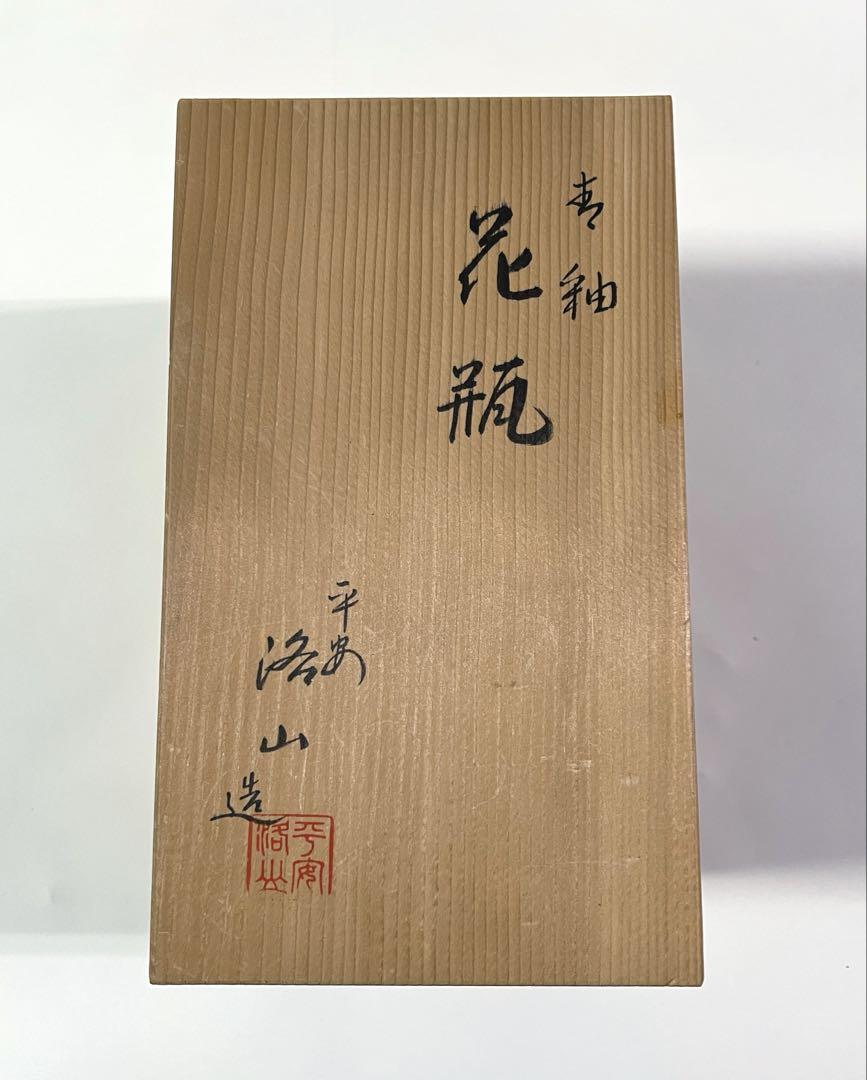 青釉
花瓶
平安
洛山
造
平安
洛山